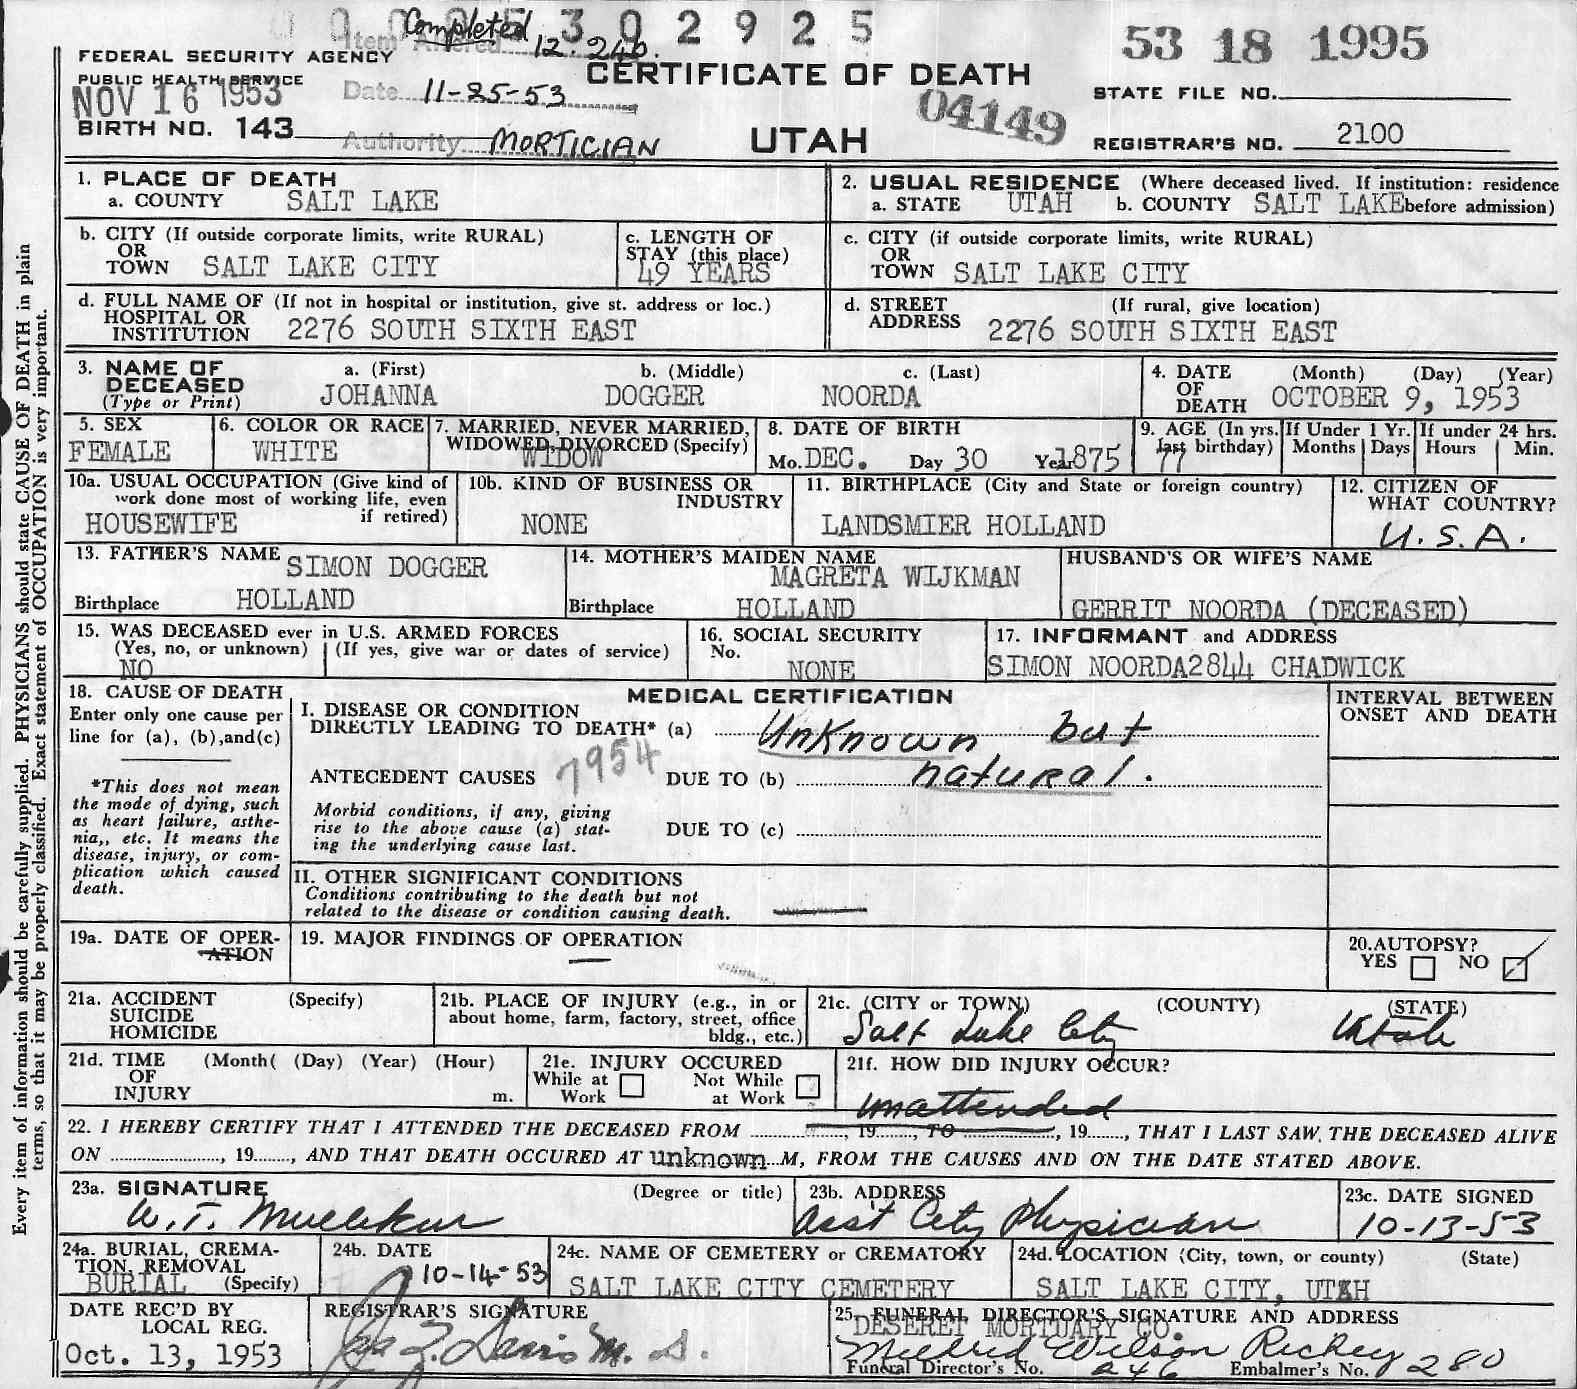 0 0 0 5 3 0 2 9 2 5
Completed
Item Altered 12. 24b.
53 18 1995
FEDERAL SECURITY AGENCY
PUBLIC HEALTH SERVICE
NOV 16 1953
Date 11-25-53
CERTIFICATE OF DEATH
04149
STATE FILE NO.
BIRTH NO. 143
Authority MORTICIAN
UTAH
REGISTRAR'S NO. 2100
1. PLACE OF DEATH
a. COUNTY SALT LAKE
2. USUAL RESIDENCE (Where deceased lived. If institution: residence
a. STATE UTAH b. COUNTY SALT LAKE before admission)
b. CITY (If outside corporate limits, write RURAL)
OR
TOWN SALT LAKE CITY
c. LENGTH OF
STAY (this place)
49 YEARS
c. CITY (if outside corporate limits, write RURAL)
OR
TOWN SALT LAKE CITY
d. FULL NAME OF (If not in hospital or institution, give st. address or loc.)
HOSPITAL OR
INSTITUTION 2276 SOUTH SIXTH EAST
d. STREET (If rural, give location)
ADDRESS 2276 SOUTH SIXTH EAST
3. NAME OF
DECEASED
(Type or Print)
a. (First)
JOHANNA
b. (Middle)
DOGGER
c. (Last)
NOORDA
4. DATE (Month) (Day) (Year)
OF
DEATH OCTOBER 9, 1953
5. SEX
FEMALE
6. COLOR OR RACE
WHITE
7. MARRIED, NEVER MARRIED,
WIDOWED, DIVORCED (Specify)
WIDOW
8. DATE OF BIRTH
Mo. DEC. Day 30 Year 1875
9. AGE (In yrs.
last birthday)
77
If Under 1 Yr.
Months Days
If under 24 hrs.
Hours Min.
10a. USUAL OCCUPATION (Give kind of
work done most of working life, even
if retired)
HOUSEWIFE
10b. KIND OF BUSINESS OR
INDUSTRY
NONE
11. BIRTHPLACE (City and State or foreign country)
LANDSMIER HOLLAND
12. CITIZEN OF
WHAT COUNTRY?
U.S.A.
13. FATHER'S NAME SIMON DOGGER
Birthplace HOLLAND
14. MOTHER'S MAIDEN NAME
MAGRETA WIJKMAN
Birthplace HOLLAND
HUSBAND'S OR WIFE'S NAME
GERRIT NOORDA (DECEASED)
15. WAS DECEASED ever in U.S. ARMED FORCES
(Yes, no, or unknown) (If yes, give war or dates of service)
NO
16. SOCIAL SECURITY
No.
NONE
17. INFORMANT and ADDRESS
SIMON NOORDA2844 CHADWICK
18. CAUSE OF DEATH
Enter only one cause per
line for (a), (b),and(c)
*This does not mean
the mode of dying, such
as heart failure, asthe-
nia,, etc. It means the
disease, injury, or com-
plication which caused
death.
MEDICAL CERTIFICATION
I. DISEASE OR CONDITION
DIRECTLY LEADING TO DEATH* (a) Unknown but
ANTECEDENT CAUSES 7954 DUE TO (b) natural.
Morbid conditions, if any, giving
rise to the above cause (a) stat-
ing the underlying cause last.
DUE TO (c)
II. OTHER SIGNIFICANT CONDITIONS
Conditions contributing to the death but not
related to the disease or condition causing death.
INTERVAL BETWEEN
ONSET AND DEATH
19a. DATE OF OPER-
ATION
19. MAJOR FINDINGS OF OPERATION
20. AUTOPSY?
YES NO
21a. ACCIDENT (Specify)
SUICIDE
HOMICIDE
21b. PLACE OF INJURY (e.g., in or
about home, farm, factory, street, office
bldg., etc.)
21c. (CITY or TOWN) (COUNTY) (STATE)
Salt Lake City Utah
21d. TIME (Month( (Day) (Year) (Hour)
OF
INJURY m.
21e. INJURY OCCURED
While at Not While
Work at Work
21f. HOW DID INJURY OCCUR?
unattended
22. I HEREBY CERTIFY THAT I ATTENDED THE DECEASED FROM , 19 , TO , 19 , THAT I LAST SAW THE DECEASED ALIVE
ON , 19 , AND THAT DEATH OCCURED AT unknown M, FROM THE CAUSES AND ON THE DATE STATED ABOVE.
23a. SIGNATURE (Degree or title)
W. T.
23b. ADDRESS
Ass't City Physician
23c. DATE SIGNED
10-13-53
24a. BURIAL, CREMA-
TION, REMOVAL
BURIAL (Specify)
24b. DATE
10-14-53
24c. NAME OF CEMETERY or CREMATORY
SALT LAKE CITY CEMETERY
24d. LOCATION (City, town, or county) (State)
SALT LAKE CITY, UTAH
DATE REC'D BY
LOCAL REG.
Oct. 13, 1953
REGISTRAR'S SIGNATURE
Davis M. D.
25. FUNERAL DIRECTOR'S SIGNATURE AND ADDRESS
DESERET MORTUARY CO.
Mildred Wilson Richey
Funeral Director's No. 246 Embalmer's No. 280
Every item of information should be carefully supplied. PHYSICIANS should state CAUSE OF DEATH in plain
terms, so that it may be properly classified. Exact statement of OCCUPATION is very important.